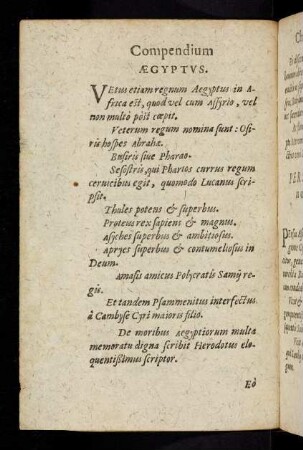 Compendium
ÆGYPTVS.
VEtus etiam regnum Aegyptus in A-
frica est, quod vel cum Assyrio, vel
non multò pòst cœpit.
Veterum regum nomina sunt: Osi-
ris hospes Abrahæ.
Busiris siue Pharao.
Sesostris, qui Pharios currus regum
ceruicibus egit, quomodo Lucanus scri-
psit.
Thules potens & superbus.
Proteus rex sapiens & magnus.
Asyches superbus & ambitiosus.
Apryes superbus & contumeliosus in
Deum.
Amasis amicus Polycratis Samij re-
gis.
Et tandem Psammenitus interfectus
à Cambyse Cyri maioris filio.
De moribus Aegyptiorum multa
memoratu digna scribit Herodotus elo-
quentissimus scriptor.
Eò